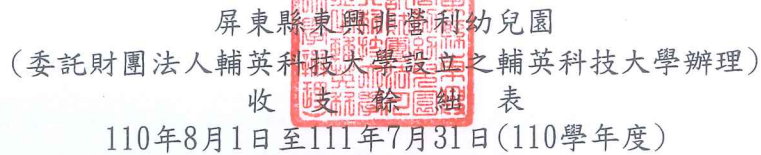 屏東縣東興非營利幼兒園
(委託財團法人輔英科技大學設立之輔英科技大學辦理)
收支餘絀表
110年8月1日至111年7月31日(110學年度)